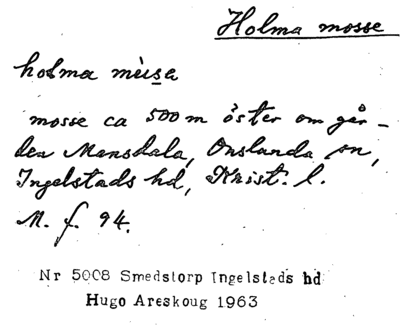 Holma mosse
holma mùsa
mosse ca 500 m öster om går-
den Mansdala, Onslunda sn,
Ingelstads hd, Krist. l.
M. f. 94.
Nr 5008 Smedstorp Ingelstads hd
Hugo Areskoug 1963